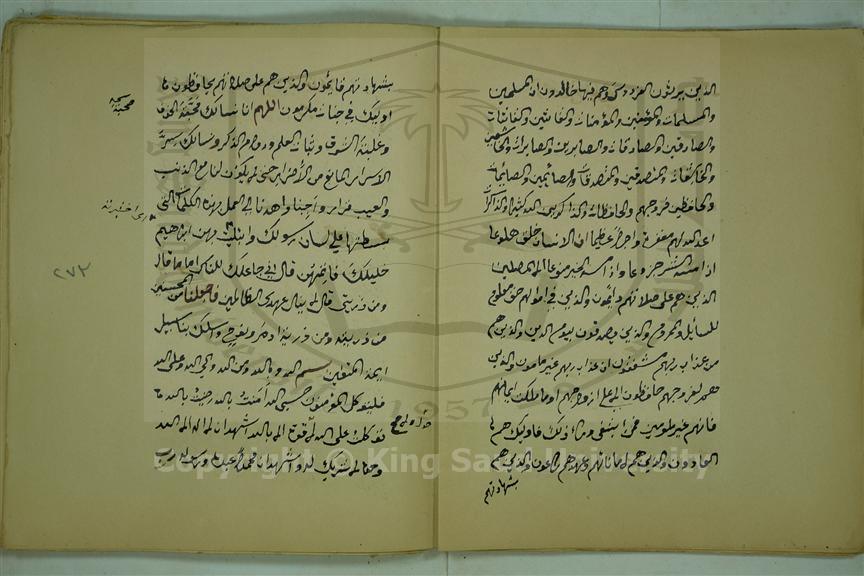 الذين يرثون الفردوس هم فيها خالدون ان المسلمين
والمسلمات والمؤمنين والمؤمنات والقانتين والقانتات
والصادقين والصادقات والصابرين والصابرات والخاشعين
والخاشعات والمتصدقين والمتصدقات والصائمين والصائمات
والحافظين فروجهم والحافظات والذاكرين الله كثيرا والذاكرات
اعد الله لهم مغفرة واجرا عظيما ان الانسان خلق هلوعا
اذا مسه الشر جزوعا واذا مسه الخير منوعا الا المصلين
الذين هم على صلاتهم دائمون والذين في اموالهم حق معلوم
للسائل والمحروم والذين يصدقون بيوم الدين والذين هم
من عذاب ربهم مشفقون ان عذاب ربهم غير مامون والذين
هم لفروجهم حافظون الا على ازواجهم او ما ملكت ايمانهم
فانهم غير ملومين فمن ابتغى وراء ذلك فاوليك هم
العادون والذين هم لاماناتهم وعهدهم راعون والذين هم
بشهاداتهم
بشهاداتهم قايمون والذين هم على صلاتهم يحافظون
اوليك في جنات مكرمون اللهم انا نسالك صحبة الخوف
وغلبة الشوق وثبات العلم ودوام الذكر ونسالك سر
الاسرار المانع من الاضرار حتى لا يكون لنا مع الذنب
والعيب قرار واجتبنا واهدنا الى العمل بهذه الكلمات التي
بسطتها على لسان رسولك وابتليت بهن ابراهيم
خليلك فاتمهن قال اني جاعلك للناس اماما قال
ومن ذريتي قال لا ينال عهدي الظالمين فاجعلنا من المحسنين
من ذريته ومن ذرية ادم ونوح واسلك بنا سبيل
ايمة المتقين بسم الله وبالله ومن الله والى الله وعلى الله
فليتوكل المؤمنون حسبي الله آمنت بالله رضيت بالله
توكلت على الله لا قوة الا بالله اشهد ان لا اله الا الله
وحده لا شريك له واشهد ان محمدا عبده ورسوله رب
نسخه
محبة
٢٧٢
Copyright © King Saud University
1957